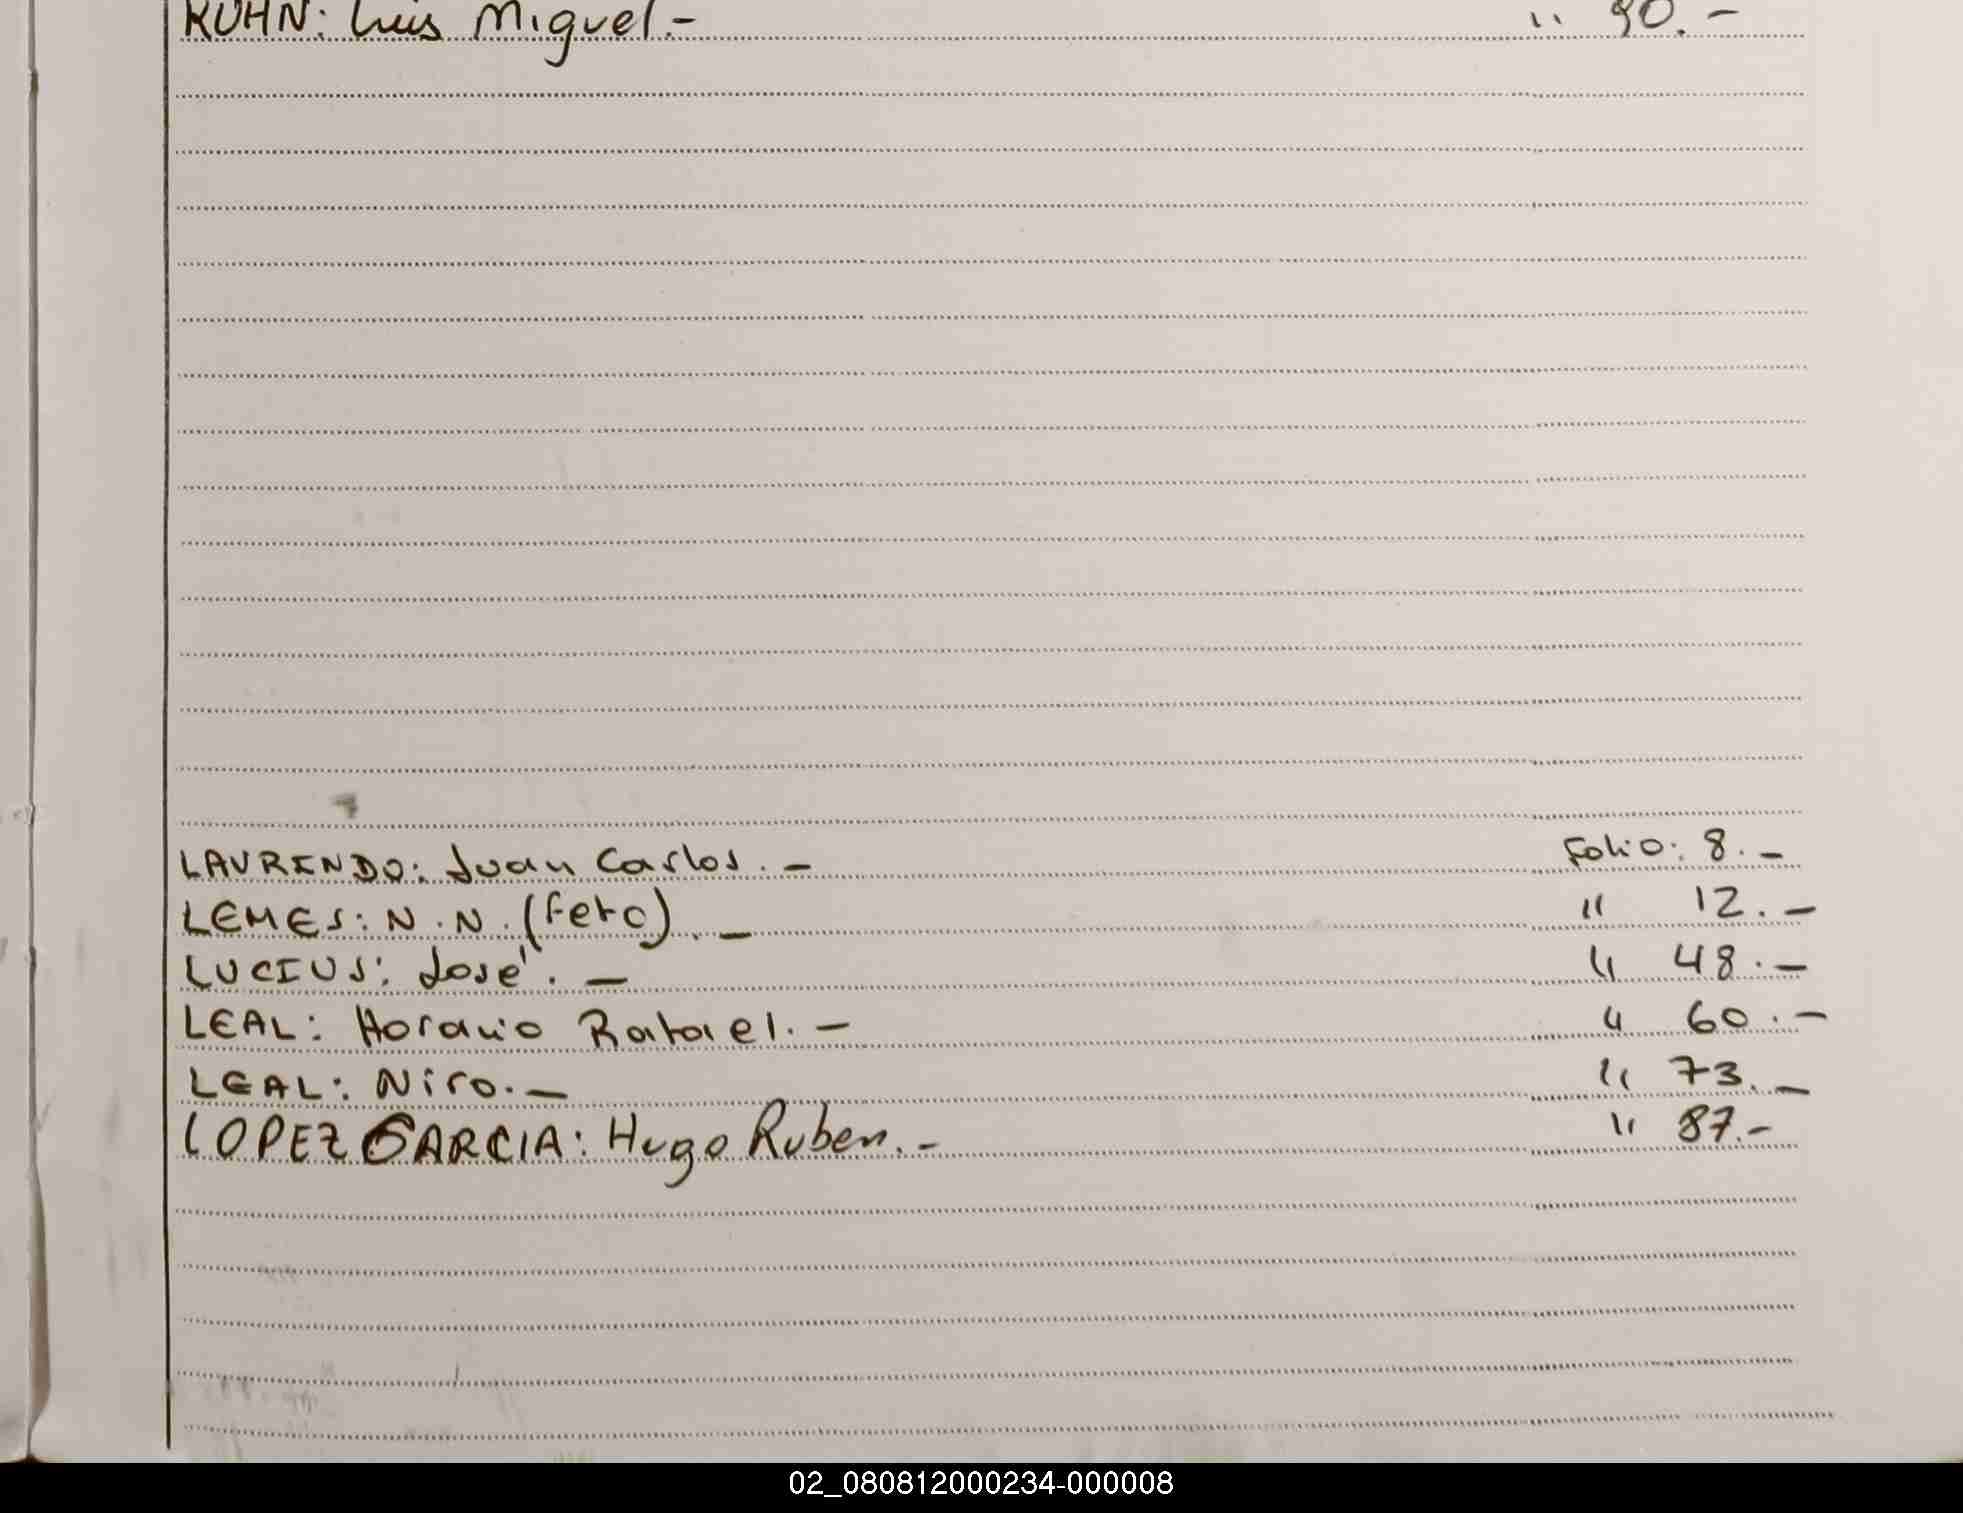 KUHN: Luis Miguel.- " 90.-
LAURENDO: Juan Carlos.- Folio: 8.-
LEMES: N.N. (Feto).- " 12.-
LUCIUS: José.- " 48.-
LEAL: Horacio Rafael.- " 60.-
LEAL: Niro.- " 73.-
LOPEZ GARCIA: Hugo Ruben.- " 87.-
02_080812000234-000008